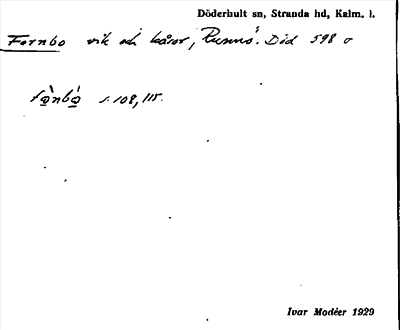 Döderhult sn, Stranda hd, Kalm. l.
Fornbo vik och kåror, Runnö. Död 598 σ
fo̱̊̀nbó̱ s. 108, 115.
Ivar Modéer 1929